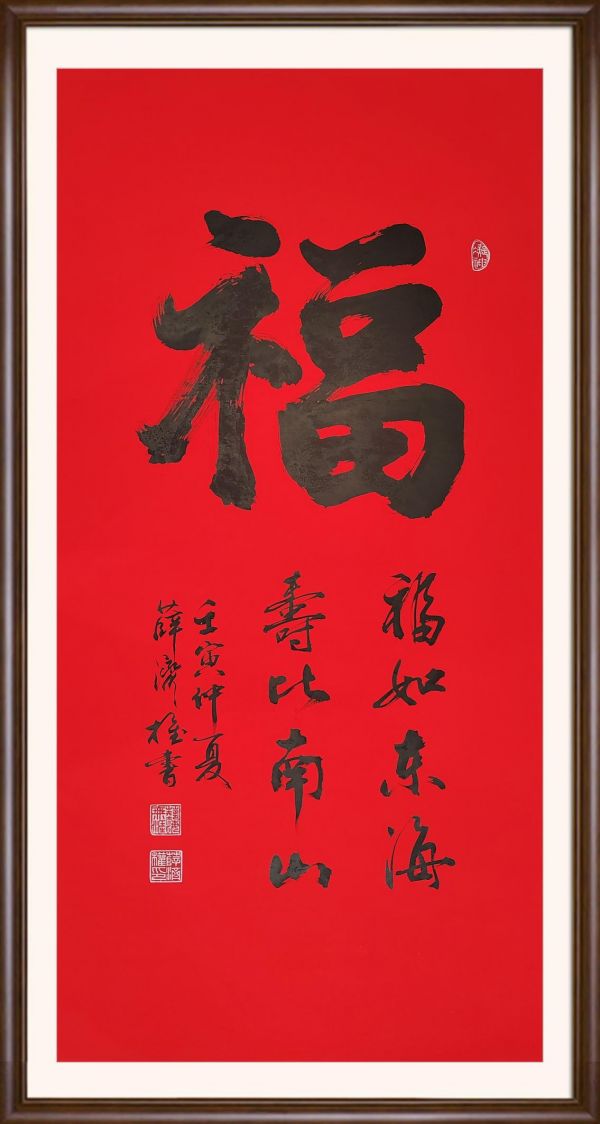 福
福如东海
壽比南山
壬寅仲夏
薛济権書